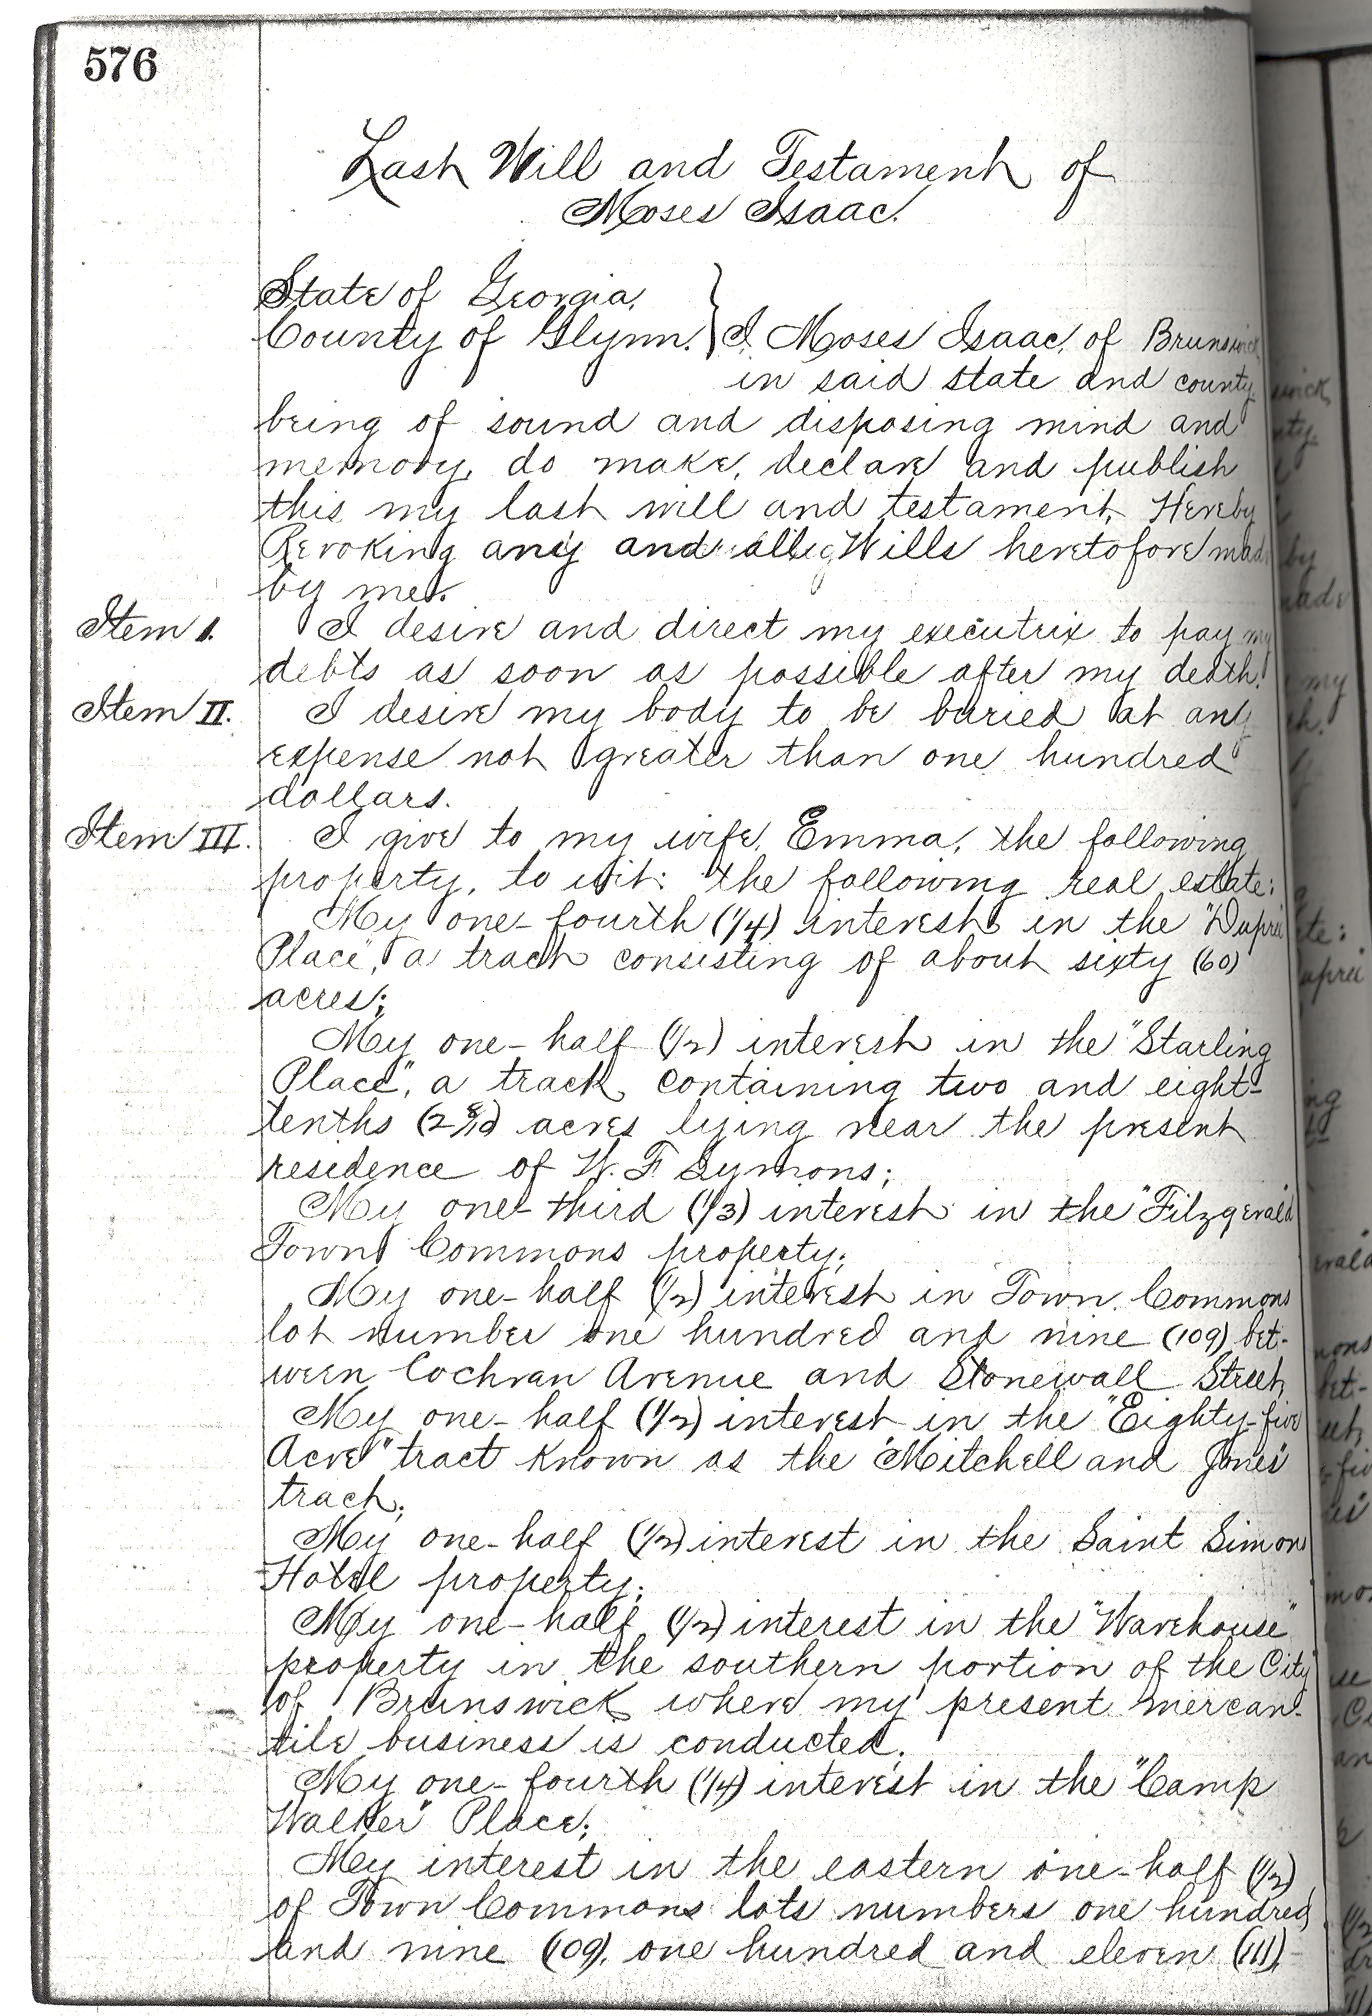 576
Last Will and Testament of
Moses Isaac.
State of Georgia,
County of Glynn. } I, Moses Isaac, of Brunswick,
in said state and county
being of sound and disposing mind and
memory, do make, declare and publish
this my last will and testament, Hereby
Revoking any and all Wills heretofore made
by me.
Item I. I desire and direct my executrix to pay my
debts as soon as possible after my death.
Item II. I desire my body to be buried at any
expense not greater than one hundred
dollars.
Item III. I give to my wife, Emma, the following
property, to wit: the following real estate:
My one-fourth (1/4) interest in the "Dupree
Place", a tract consisting of about sixty (60)
acres;
My one-half (1/2) interest in the "Starling
Place", a track containing two and eight-
tenths (2 8/10) acres lying near the present
residence of W. F. Symons;
My one-third (1/3) interest in the "Fitzgerald
Town Commons property;
My one-half (1/2) interest in Town Commons
lot number one hundred and nine (109) bet-
ween Cochran Avenue and Stonewall Street,
My one-half (1/2) interest in the "Eighty-five
Acre" tract known as the "Mitchell and Jones"
tract;
My one-half (1/2) interest in the Saint Simons
Hotel property;
My one-half (1/2) interest in the "Warehouse"
property in the southern portion of the City
of Brunswick where my present mercan-
tile business is conducted;
My one-fourth (1/4) interest in the "Camp
Walker" Place;
My interest in the eastern one-half (1/2)
of Town Commons lots numbers one hundred
and nine (109), one hundred and eleven (111),